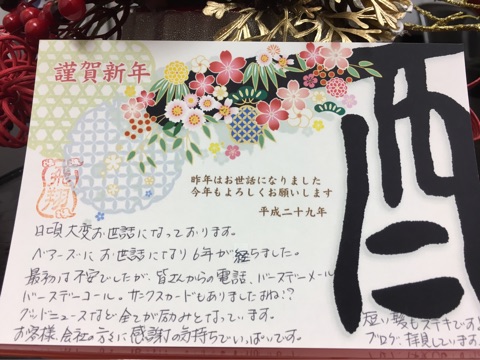 謹賀新年
酉
昨年はお世話になりました
今年もよろしくお願いします
平成二十九年
飛翔
日頃大変お世話になっております。
ベアーズにお世話になり6年が経ちました。
最初は不安でしたが、皆さんからの電話、バースデーメール
バースデーコール。サンクスカードもありましたよね!?
グッドニュースなど全てが励みとなっています。
お客様、会社の方々に感謝の気持ちでいっぱいです。
短い髪もステキです!
ブログ、拝見しています!